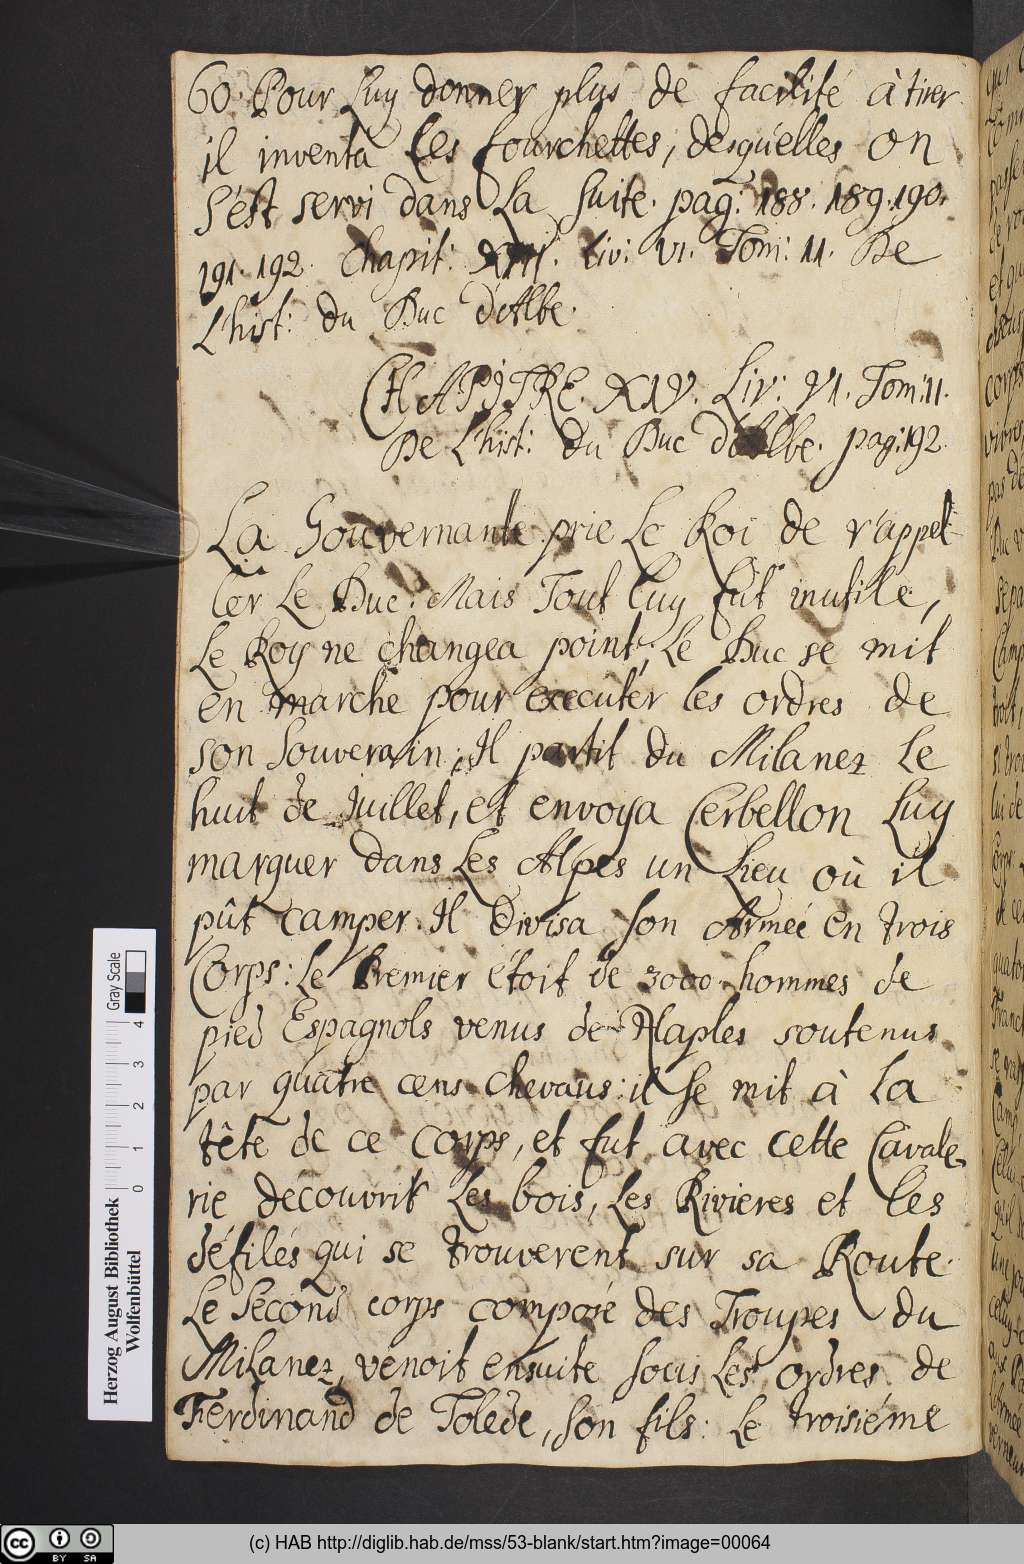 60. Pour Luy donner plus de facilité à tirer
il inventa les fourchettes, desquelles on
s'est servi dans La suite. pag: 188. 189. 190.
191. 192. Chapit: XIII. Liv: VI. Tom: 11. De
L'hist: du Duc d'Albe.
CHAPITRE. XIV. Liv: VI. Tom: 11.
De L'hist: du Duc d'Albe. pag: 192.
La Gouvernante prie Le Roi de r'appel
ler Le Duc. Mais Tout luy fut inutile,
Le Roy ne changea point; Le Duc se mit
en marche pour executer les ordres de
son Souverain; Il partit du Milanez Le
huit de Juillet, et envoya Cerbellon Luy
marquer dans Les Alpes un Lieu où il
pût camper. Il Divisa son Armeé en trois
Corps: Le Premier étoit de 3000. hommes de
pied Espagnols venus de Naples soutenus
par quatre cens chevaus: il se mit à La
tête de ce Corps, et fut avec cette Cavale-
rie decouvrir Les bois, Les Rivieres et les
défilés qui se trouverent sur sa Route.
Le Second corps composé des Troupes du
Milanez, venoit ensuite sous Les ordres de
Ferdinand de Tolede, son fils: Le troisiéme
Herzog August Bibliothek
Wolfenbüttel
0 1 2 3 4
Gray Scale
cc BY SA
(c) HAB http://diglib.hab.de/mss/53-blank/start.htm?image=00064